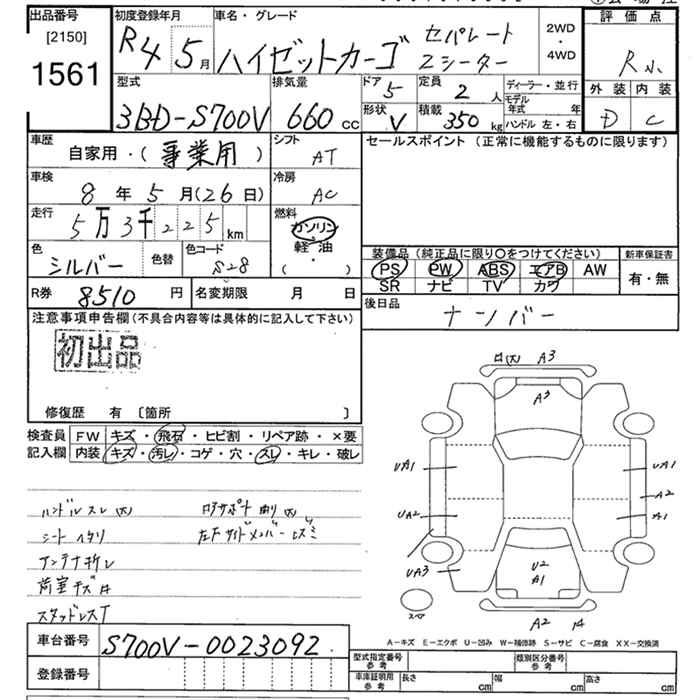 出品番号
[2150]
1561
初度登録年月
R4 5月
車名・グレード
ハイゼットカーゴ
セパレート
2シーター
2WD
・
4WD
評価点
R小
外装 内装
D C
型式
3BD-S700V
排気量
660 cc
ドア 5
定員 2 人
形状 V
積載 350 kg
ディーラー・並行
モデル年式 年
ハンドル 左・右
車歴
自家用・(事業用)
シフト
AT
セールスポイント (正常に機能するものに限ります)
車検
8年5月(26日)
冷房
AC
走行
5万3千225km
燃料
ガソリン
軽油
( ・ )
色
シルバー
色替
色コード
S28
装備品 (純正品に限り○をつけてください)
PS PW ABS エアB AW
SR ナビ TV カワ
新車保証書
有・無
R券 8510円
名変期限 月 日
後日品
ナンバー
注意事項申告欄(不具合内容等は具体的に記入して下さい)
初出品
修復歴 有 〔箇所 〕
検査員
記入欄
FW キズ・飛石・ヒビ割・リペア跡・×要
内装 キズ・汚レ・コゲ・穴・スレ・キレ・破レ
ハンドルスレ
シートヘタリ
左フサイドメンバー
アンテナ折レ
荷室キズ
スタッドレスT
車台番号 S700V-0023092
登録番号
A3
A3
UA1
UA1
A2
UA2
A1
UA3
U2
A1
スペア
A2
A-キズ E-エクボ U-凹み W-補修跡 S-サビ C-腐食 XX-交換済
型式指定番号
参考
類別区分番号
参考
車庫証明用
参考
長さ cm 幅 cm 高さ cm